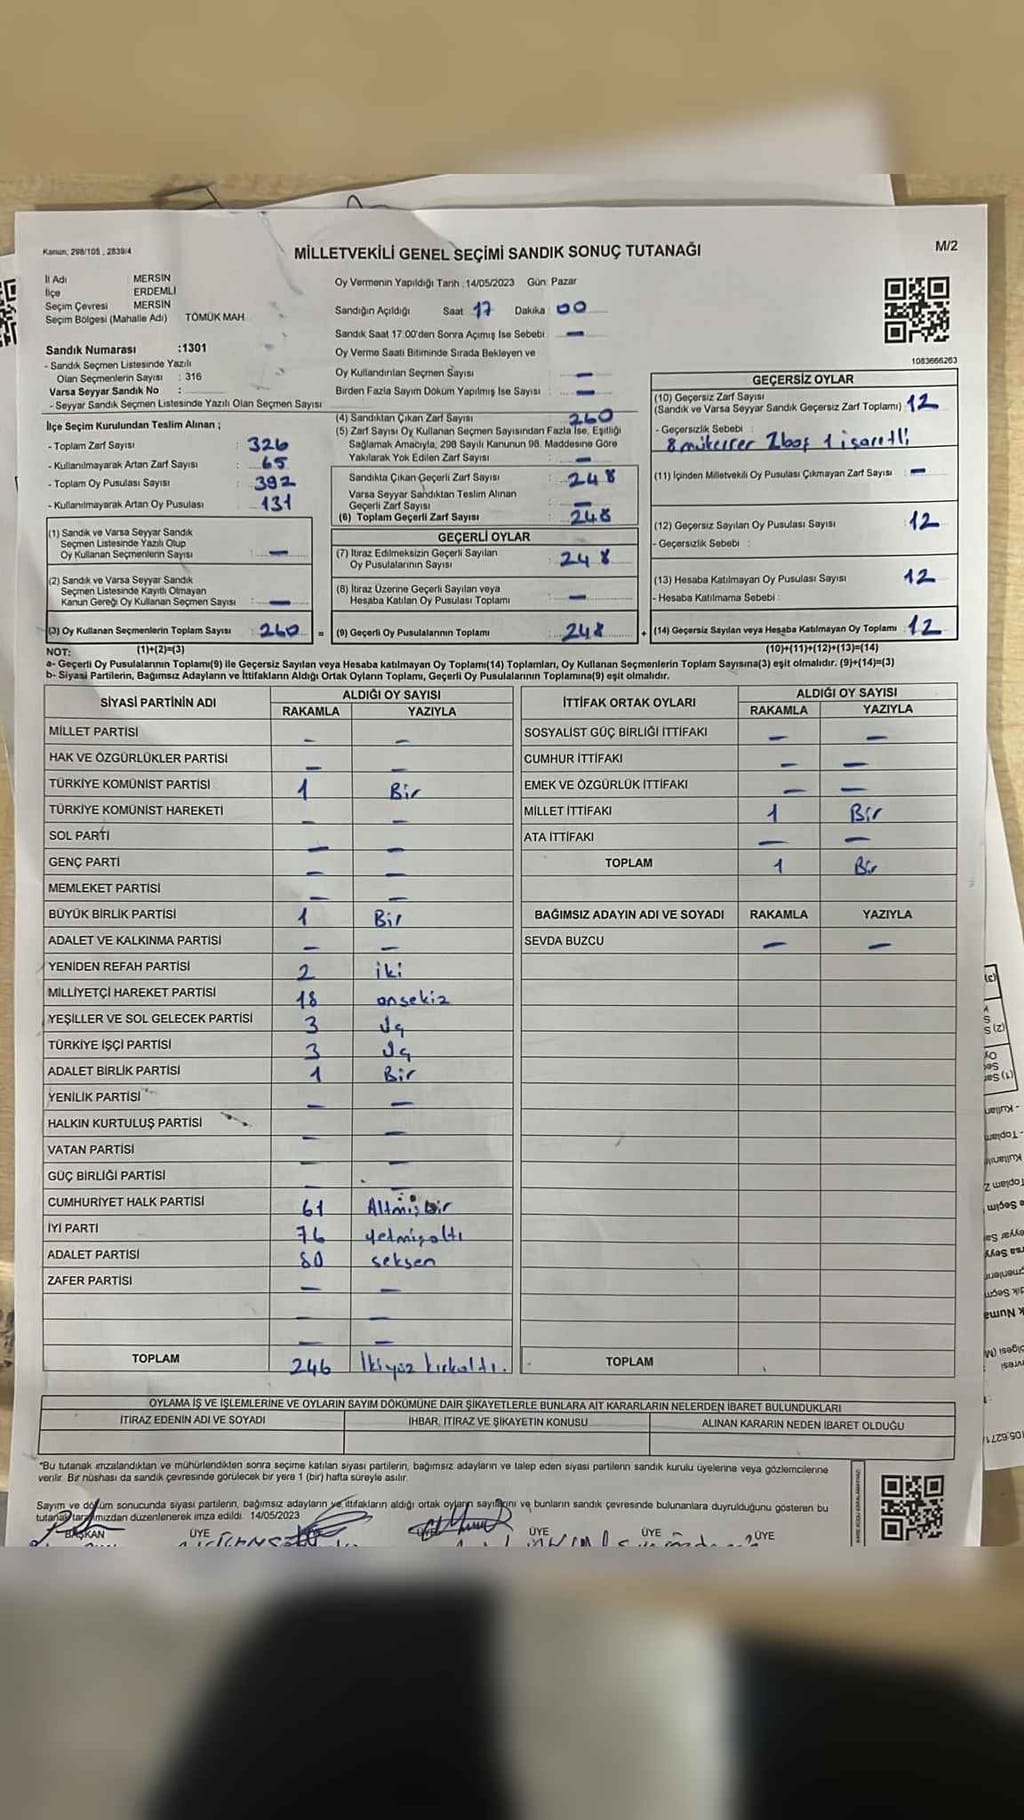 Kanun: 298/105 , 2839/4
MİLLETVEKİLİ GENEL SEÇİMİ SANDIK SONUÇ TUTANAĞI
M/2
İl Adı MERSİN
İlçe ERDEMLİ
Seçim Çevresi MERSİN
Seçim Bölgesi (Mahalle Adı) TÖMÜK MAH.
Sandık Numarası :1301
- Sandık Seçmen Listesinde Yazılı
Olan Seçmenlerin Sayısı : 316
Varsa Seyyar Sandık No :
- Seyyar Sandık Seçmen Listesinde Yazılı Olan Seçmen Sayısı
İlçe Seçim Kurulundan Teslim Alınan ;
- Toplam Zarf Sayısı : 326
- Kullanılmayarak Artan Zarf Sayısı : 65
- Toplam Oy Pusulası Sayısı : 392
- Kullanılmayarak Artan Oy Pusulası : 131
(1) Sandık ve Varsa Seyyar Sandık
Seçmen Listesinde Yazılı Olup
Oy Kullanan Seçmenlerin Sayısı : —
(2) Sandık ve Varsa Seyyar Sandık
Seçmen Listesinde Kayıtlı Olmayan
Kanun Gereği Oy Kullanan Seçmen Sayısı : —
(3) Oy Kullanan Seçmenlerin Toplam Sayısı : 260
(1)+(2)=(3)
Oy Vermenin Yapıldığı Tarih :14/05/2023 Gün: Pazar
Sandığın Açıldığı Saat 17 Dakika : 00
Sandık Saat 17:00'den Sonra Açmış İse Sebebi —
Oy Verme Saati Bitiminde Sırada Bekleyen ve
Oy Kullandırılan Seçmen Sayısı : —
Birden Fazla Sayım Döküm Yapılmış İse Sayısı : —
(4) Sandıktan Çıkan Zarf Sayısı 260
(5) Zarf Sayısı Oy Kullanan Seçmen Sayısından Fazla İse, Eşitliği
Sağlamak Amacıyla; 298 Sayılı Kanunun 98. Maddesine Göre
Yakılarak Yok Edilen Zarf Sayısı : —
Sandıkta Çıkan Geçerli Zarf Sayısı : 248
Varsa Seyyar Sandıktan Teslim Alınan
Geçerli Zarf Sayısı : —
(6) Toplam Geçerli Zarf Sayısı : 248
GEÇERLİ OYLAR
(7) İtiraz Edilmeksizin Geçerli Sayılan
Oy Pusulalarının Sayısı : 248
(8) İtiraz Üzerine Geçerli Sayılan veya
Hesaba Katılan Oy Pusulası Toplamı : —
= (9) Geçerli Oy Pusulalarının Toplamı : 248
1083666263
GEÇERSİZ OYLAR
(10) Geçersiz Zarf Sayısı
(Sandık ve Varsa Seyyar Sandık Geçersiz Zarf Toplamı) : 12
- Geçersizlik Sebebi :
8 mükerrer 2 boş 1 işaretli
(11) İçinden Milletvekili Oy Pusulası Çıkmayan Zarf Sayısı : —
(12) Geçersiz Sayılan Oy Pusulası Sayısı 12
- Geçersizlik Sebebi :
(13) Hesaba Katılmayan Oy Pusulası Sayısı 12
- Hesaba Katılmama Sebebi :
+ (14) Geçersiz Sayılan veya Hesaba Katılmayan Oy Toplamı : 12
(10)+(11)+(12)+(13)=(14)
NOT:
a- Geçerli Oy Pusulalarının Toplamı(9) ile Geçersiz Sayılan veya Hesaba katılmayan Oy Toplamı(14) Toplamları, Oy Kullanan Seçmenlerin Toplam Sayısına(3) eşit olmalıdır. (9)+(14)=(3)
b- Siyasi Partilerin, Bağımsız Adayların ve İttifakların Aldığı Ortak Oyların Toplamı, Geçerli Oy Pusulalarının Toplamına(9) eşit olmalıdır.
SİYASİ PARTİNİN ADI ALDIĞI OY SAYISI
RAKAMLA YAZIYLA
MİLLET PARTİSİ — —
HAK VE ÖZGÜRLÜKLER PARTİSİ — —
TÜRKİYE KOMÜNİST PARTİSİ 1 Bir
TÜRKİYE KOMÜNİST HAREKETİ — —
SOL PARTİ — —
GENÇ PARTİ — —
MEMLEKET PARTİSİ — —
BÜYÜK BİRLİK PARTİSİ 1 Bir
ADALET VE KALKINMA PARTİSİ — —
YENİDEN REFAH PARTİSİ 2 iki
MİLLİYETÇİ HAREKET PARTİSİ 18 onsekiz
YEŞİLLER VE SOL GELECEK PARTİSİ 3 üç
TÜRKİYE İŞÇİ PARTİSİ 3 üç
ADALET BİRLİK PARTİSİ 1 Bir
YENİLİK PARTİSİ — —
HALKIN KURTULUŞ PARTİSİ — —
VATAN PARTİSİ — —
GÜÇ BİRLİĞİ PARTİSİ — —
CUMHURİYET HALK PARTİSİ 61 Altmışbir
İYİ PARTİ 76 yetmişaltı
ADALET PARTİSİ 80 seksen
ZAFER PARTİSİ — —
— —
TOPLAM 246 İkiyüz kırkaltı.
İTTİFAK ORTAK OYLARI ALDIĞI OY SAYISI
RAKAMLA YAZIYLA
SOSYALİST GÜÇ BİRLİĞİ İTTİFAKI — —
CUMHUR İTTİFAKI — —
EMEK VE ÖZGÜRLÜK İTTİFAKI — —
MİLLET İTTİFAKI 1 Bir
ATA İTTİFAKI — —
TOPLAM 1 Bir
BAĞIMSIZ ADAYIN ADI VE SOYADI RAKAMLA YAZIYLA
SEVDA BUZCU — —
TOPLAM
OYLAMA İŞ VE İŞLEMLERİNE VE OYLARIN SAYIM DÖKÜMÜNE DAİR ŞİKAYETLERLE BUNLARA AİT KARARLARIN NELERDEN İBARET BULUNDUKLARI
İTİRAZ EDENİN ADI VE SOYADI İHBAR, İTİRAZ VE ŞİKAYETİN KONUSU ALINAN KARARIN NEDEN İBARET OLDUĞU
*Bu tutanak imzalandıktan ve mühürlendikten sonra seçime katılan siyasi partilerin, bağımsız adayların ve talep eden siyasi partilerin sandık kurulu üyelerine veya gözlemcilerine
verilir. Bir nüshası da sandık çevresinde görülecek bir yere 1 (bir) hafta süreyle asılır.
Sayım ve döküm sonucunda siyasi partilerin, bağımsız adayların ve ittifakların aldığı ortak oyların sayılarını ve bunların sandık çevresinde bulunanlara duyrulduğunu gösteren bu
tutanak tarafımızdan düzenlenerek imza edildi. 14/05/2023
BAŞKAN ÜYE ÜYE ÜYE ÜYE ÜYE